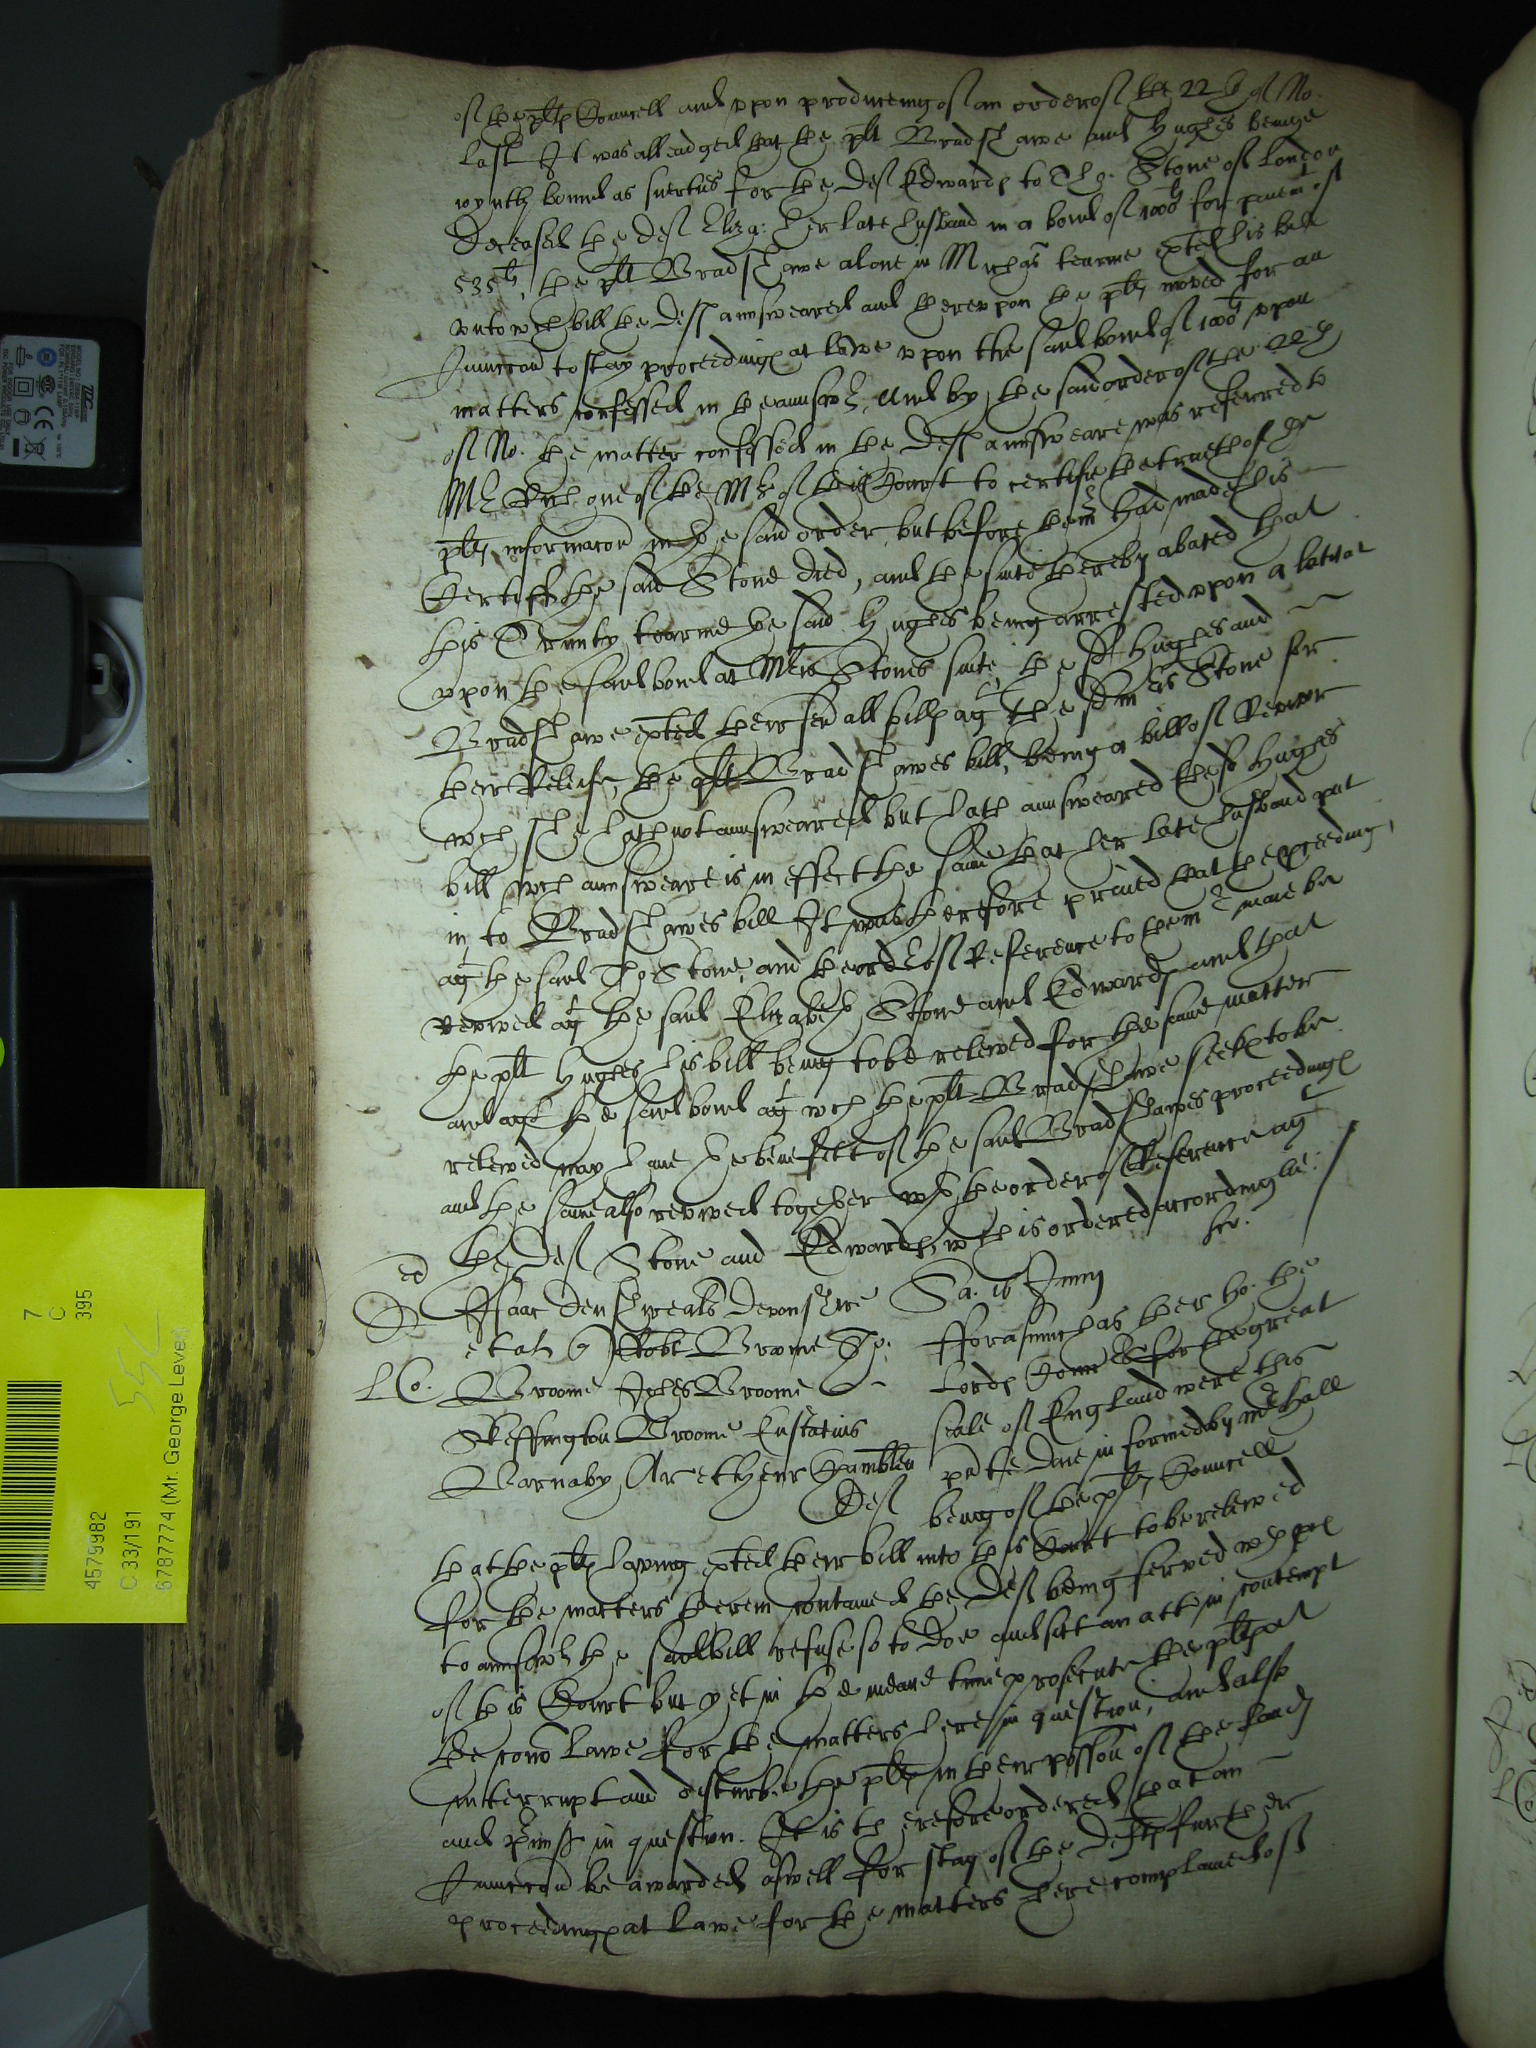 of the pltes Councell and vpon produceing of an order of the 22th of No.
last It was alleadged that the plt Bradshawe and Hughes beinge
wyth bound as suerties for the def Edwards to Tho. Stone of London
deceased the def Eliza: her late husband in a bond of 1000li for paiemt of
535li, the plt Bradshawe alone in Michas tearme exted his bill
vnto wch bill the deft aunsweared and therevpon the plts moved for an
Iniuncton to stay proceedings at lawe vpon the said bond of 1000li vpon
matters confessed in the aunswer, And by the said order of the 22th
of No. the matter confessed in the defts aunsweare was referred to
Mr one of the Mrs of this Court to certifie the trueth of the
plts informacon in the said order, but before the mr had made his
Certiff the said Stone died, and the suite thereby abated that
this Trinity tearme the said Hughes being arrested vpon a lattat
vpon the said bond at Mris Stones suite, the sd Hughes and
Bradshawe exted their seuall bills agt the sd mris Stone for
their Releife, the plt Bradshawes bill, being a bill of Revivor
wch she hath not aunsweared but hath aunsweared the sd Hughes
bill wch aunsweare is in effect the same that her late husband put
in to Bradshawes bill It was therefore praied that the proceedings
agt the said Tho Stone, and the order of Reference to the mr maie be
revived agt the said Elizabeth Stone and Edwards and that
the plt Hughes his bill being to be releived for the same matter
and agt the said bond agt wch the plt Bradshawe seeks to be
releived may have the benefitt of the said Bradshawes proceedings
and the same also revived together wth the order of Reference agt
the def Stone and Edwards, wch is ordered accordinglie:
Isaac Denshweals Devonshire Sa. 16 Junij
et al q Robt Broome Forasmuch as the right ho. the
L Co. Broome Broome Lords Comrs for the great
Skeffington Broome Eustatius seale of England were this
Barnaby Arethewr Hamblen pnte daie informed by mr Hall
Def being of the plts Councell
that the plts having exted their bill into this Court to be releived
for the matters therein contained the def being served wth pces
to aunswer the said bill refuse so to doe and sitt an attt in contempt
of this Court but yet in the meane time prosecute the plts at
the comon Lawe for the matters here in question, and also
interrupt and disturbe the plts in their possion of the lands
and pmiss in question. It is therefore ordered that an
Iniuncton be awarded aswell for stay of the defts further
proceedings at Lawe for the matters here complained of
7
C
395
55L
4579982
C 33/191
6787774 (Mr. George Lever)